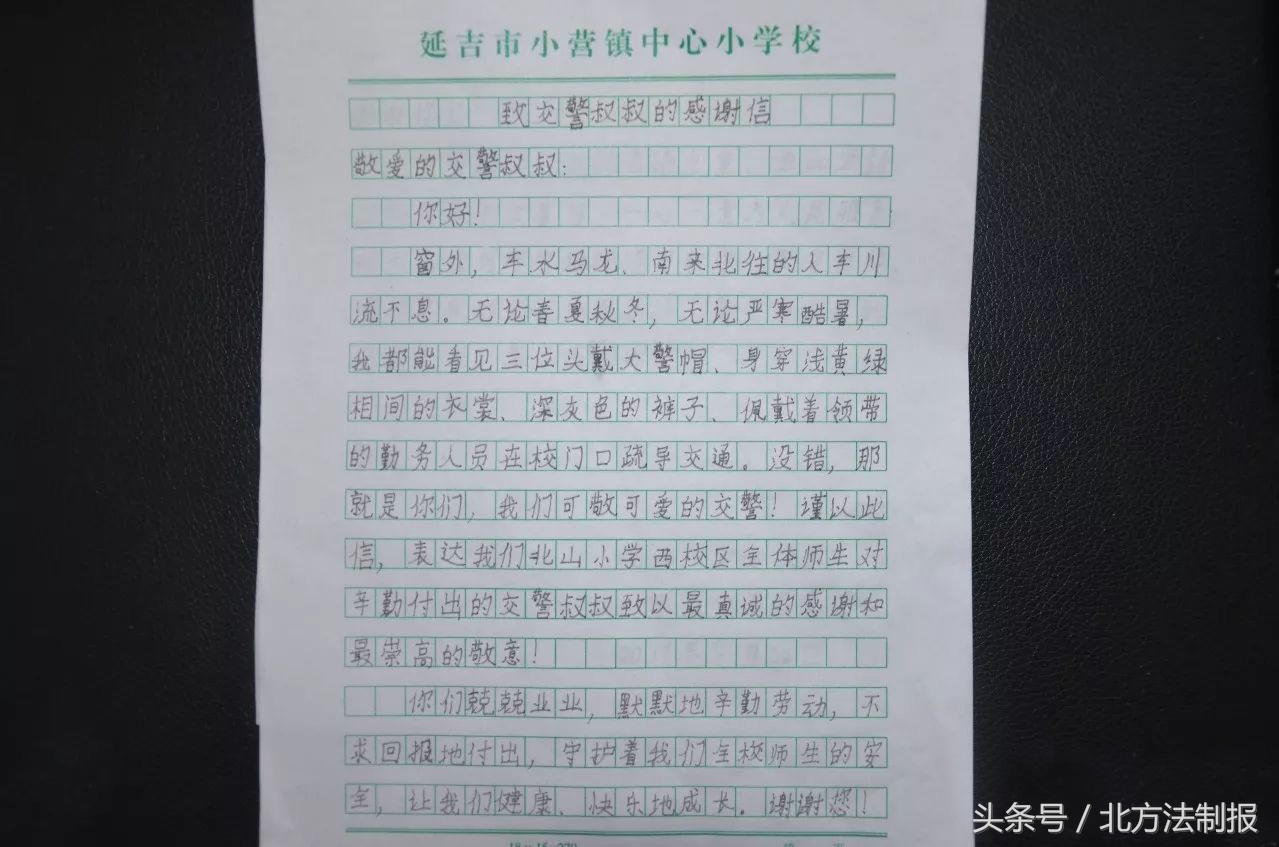 延吉市小营镇中心小学校
致交警叔叔的感谢信
敬爱的交警叔叔:
你好!
窗外,车水马龙、南来北往的人车川
流不息。无论春夏秋冬,无论严寒酷暑,
我都能看见三位头戴大警帽、身穿浅黄绿
相间的衣裳、深灰色的裤子、佩戴着领带
的勤务人员在校门口疏导交通。没错,那
就是你们,我们可敬可爱的交警!谨以此
信,表达我们北山小学西校区全体师生对
辛勤付出的交警叔叔致以最真诚的感谢和
最崇高的敬意!
你们兢兢业业,默默地辛勤劳动,不
求回报地付出,守护着我们全校师生的安
全,让我们健康、快乐地成长。谢谢您!
头条号 / 北方法制报